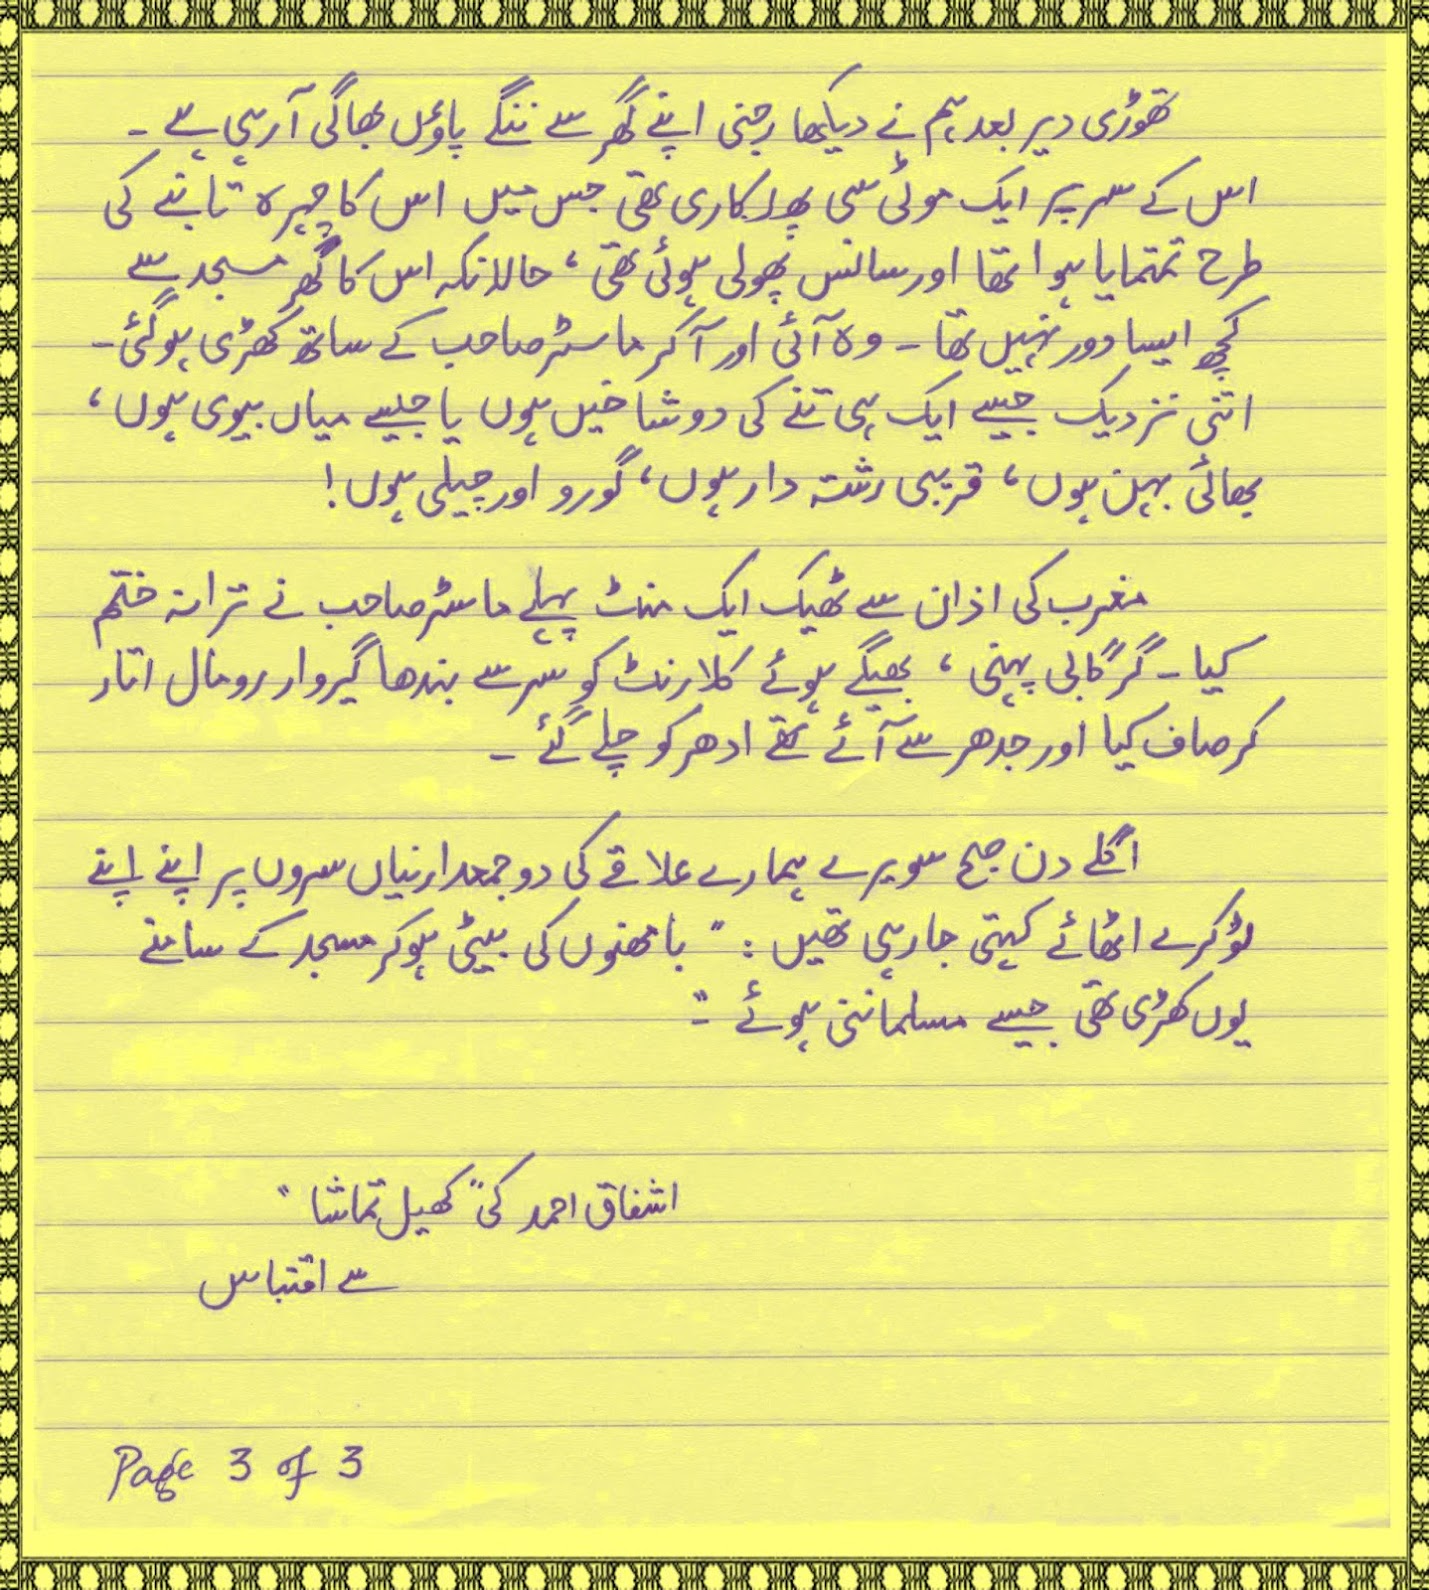 تھوڑی دیر بعد ہم نے دیکھا رجنی اپنے گھر سے ننگے پاؤں بھاگی آ رہی ہے ۔
اس کے سر پر ایک موٹی سی پھلکاری تھی جس میں اس کا چہرہ تانبے کی
طرح تمتمایا ہوا تھا اور سانس پھولی ہوئی تھی ، حالانکہ اس کا گھر مسجد سے
کچھ ایسا دور نہیں تھا ۔ وہ آئی اور آ کر ماسٹر صاحب کے ساتھ کھڑی ہو گئی ۔
اتنی نزدیک جیسے ایک ہی تنے کی دو شاخیں ہوں یا جیسے میاں بیوی ہوں ،
بھائی بہن ہوں ، قریبی رشتہ دار ہوں ، گورو اور چیلی ہوں !
مغرب کی اذان سے ٹھیک ایک منٹ پہلے ماسٹر صاحب نے ترانہ ختم
کیا ۔ گرگابی پہنی ، بھیگے ہوئے کلارنٹ کو سر سے بندھا گیروا رومال اتار
کر صاف کیا اور جدھر سے آئے تھے ادھر کو چلے گئے ۔
اگلے دن صبح سویرے ہمارے علاقے کی دو جمعدارنیاں سروں پر اپنے اپنے
ٹوکرے اٹھائے کہتی جا رہی تھیں : " بامھنوں کی بیٹی ہو کر مسجد کے سامنے
یوں کھڑی تھی جیسے مسلماننی ہوئے " ۔
اشفاق احمد کی " کھیل تماشا "
سے اقتباس
Page 3 of 3